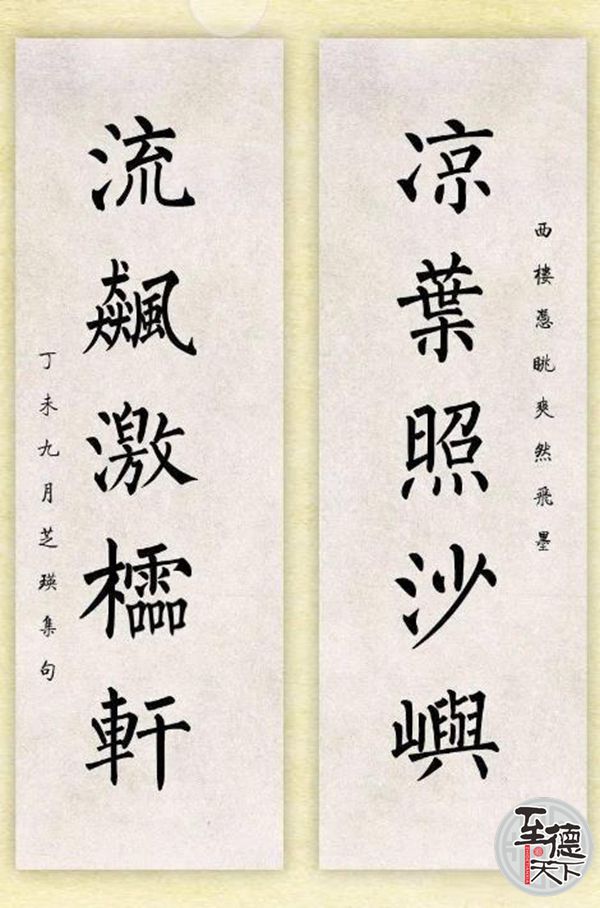 西樓憑眺爽然飛墨
凉葉照沙嶼
流飆激櫺軒
丁未九月芝瑛集句
至德天下